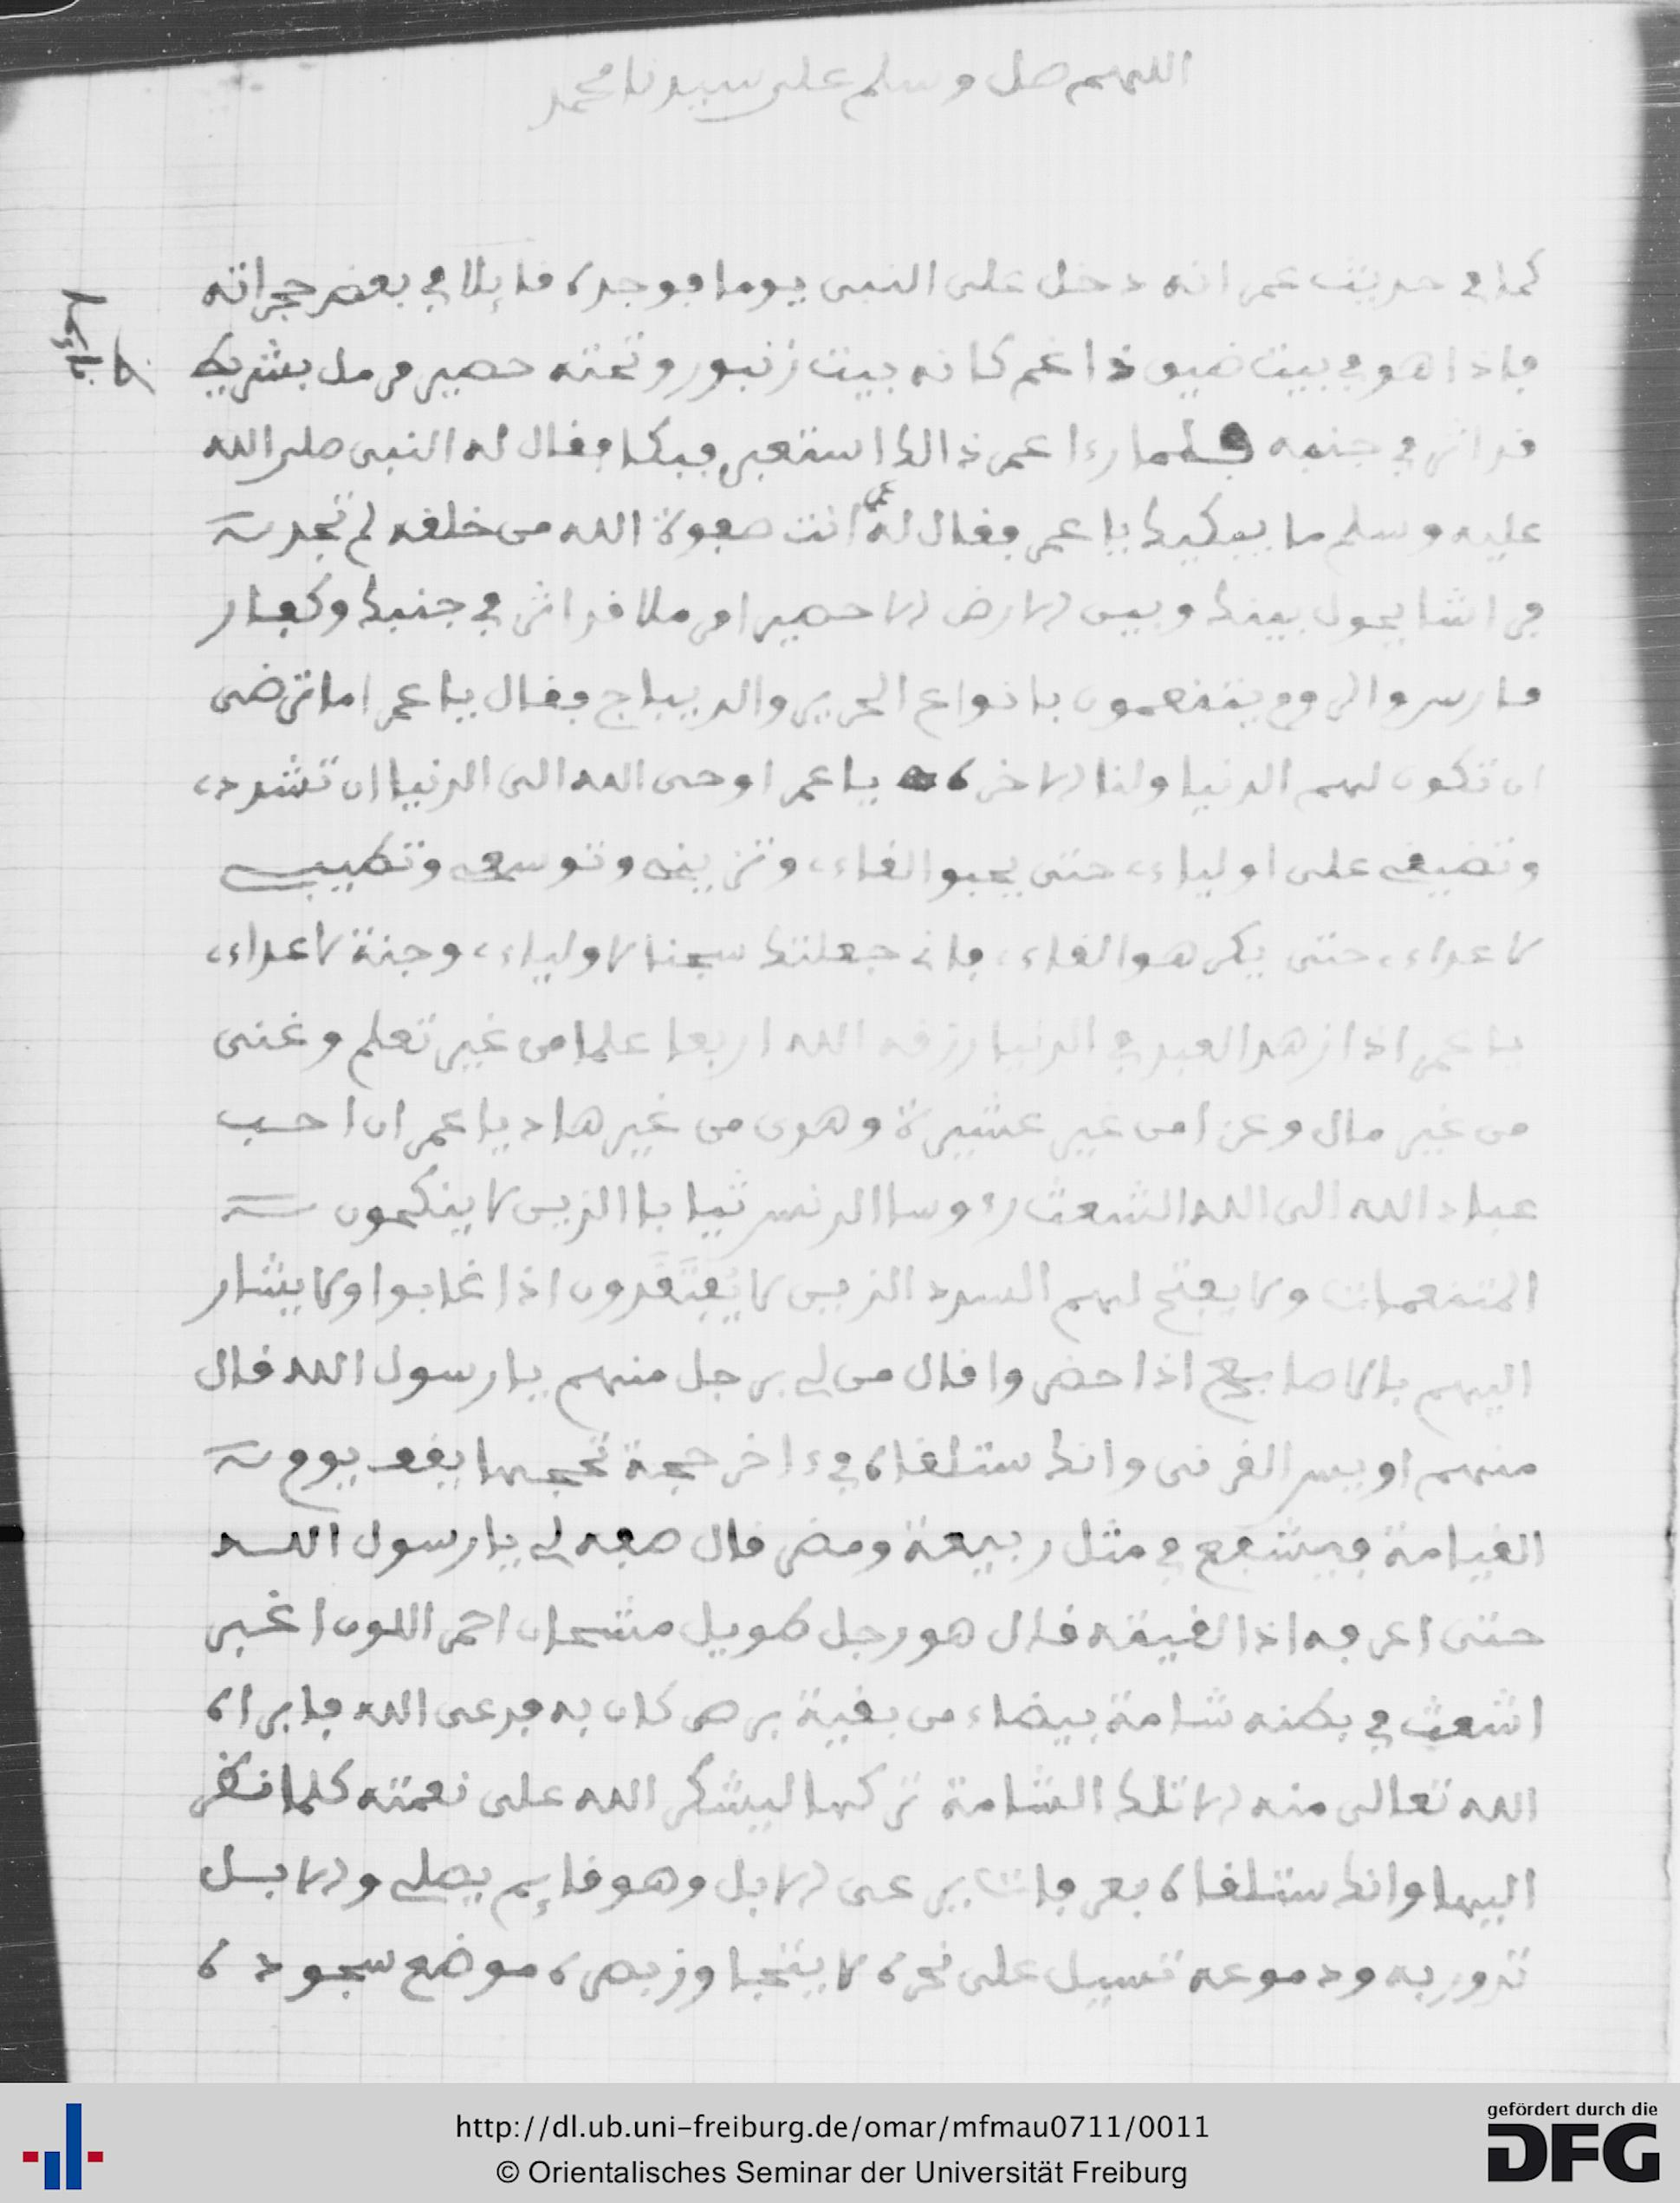 اللهم صل وسلم على سيدنا محمد
كما في حديث عمر انه دخل على النبي يوما فوجده قايلا في بعض حجراته
فاذا هو في بيت ضيق ذا غم كانه بيت زنبور وتحته حصير مرمل بشريط
قد اثر في جنبه فلما رءا عمر ذالك استعبر فبكا فقال له النبي صلى الله
عليه وسلم ما يبكيك يا عمر فقال له عمر انت صفوة الله من خلقه لم تجد
فراشا يحول بينك وبين الارض الا حصيرا مرملا قد اثر في جنبك وكفار
فارس والروم يتنعمون بانواع الحرير والديباج فقال يا عمر اما ترضى
ان تكون لهم الدنيا ولنا الاخرة يا عمر اوحى الله الى الدنيا ان تشدد
وتضيق على اولياء حتى يحبوا لقاء وتزين وتوسع وتطيب
لاعداء حتى يكرهوا لقاء فانى جعلتك سجنا لاولياء وجنة لاعداء
يا عمر اذا زهد العبد في الدنيا رزقه الله اربعا علما من غير تعلم وغنى
من غير مال وعزا من غير عشيرة وهدى من غير هاد يا عمر ان احب
عباد الله الى الله الشعث رءوسا الدنس ثيابا الذين لا ينكحون
المتنعمات ولا يفتح لهم السدد الذين لا يفتقدون اذا غابوا ولا يشار
اليهم بالاصابيع اذا حضروا قال من لي برجل منهم يا رسول الله قال
منهم اويس القرني وانك ستلقاه في ءاخر حجة تحجها يقف يوم
القيامة فيشفع في مثل ربيعة ومضر قال صفه لي يا رسول الله
حتى اعرفه اذا لقيته قال هو رجل طويل مشحان احمر اللون اغبر
اشعث في بطنه شامة بيضاء من بقية برص كان به فدعى الله فابراه
الله تعالى منه الا تلك الشامة تركها ليشكر الله على نعمته كلما نظر
اليها وانك ستلقاه بعرفات يرعى الابل وهو قايم يصلي والابل
تدور به ودموعه تسيل على نحره لا يتجاوز بصره موضع سجوده
http://dl.ub.uni-freiburg.de/omar/mfmau0711/0011
© Orientalisches Seminar der Universität Freiburg
gefördert durch die
DFG